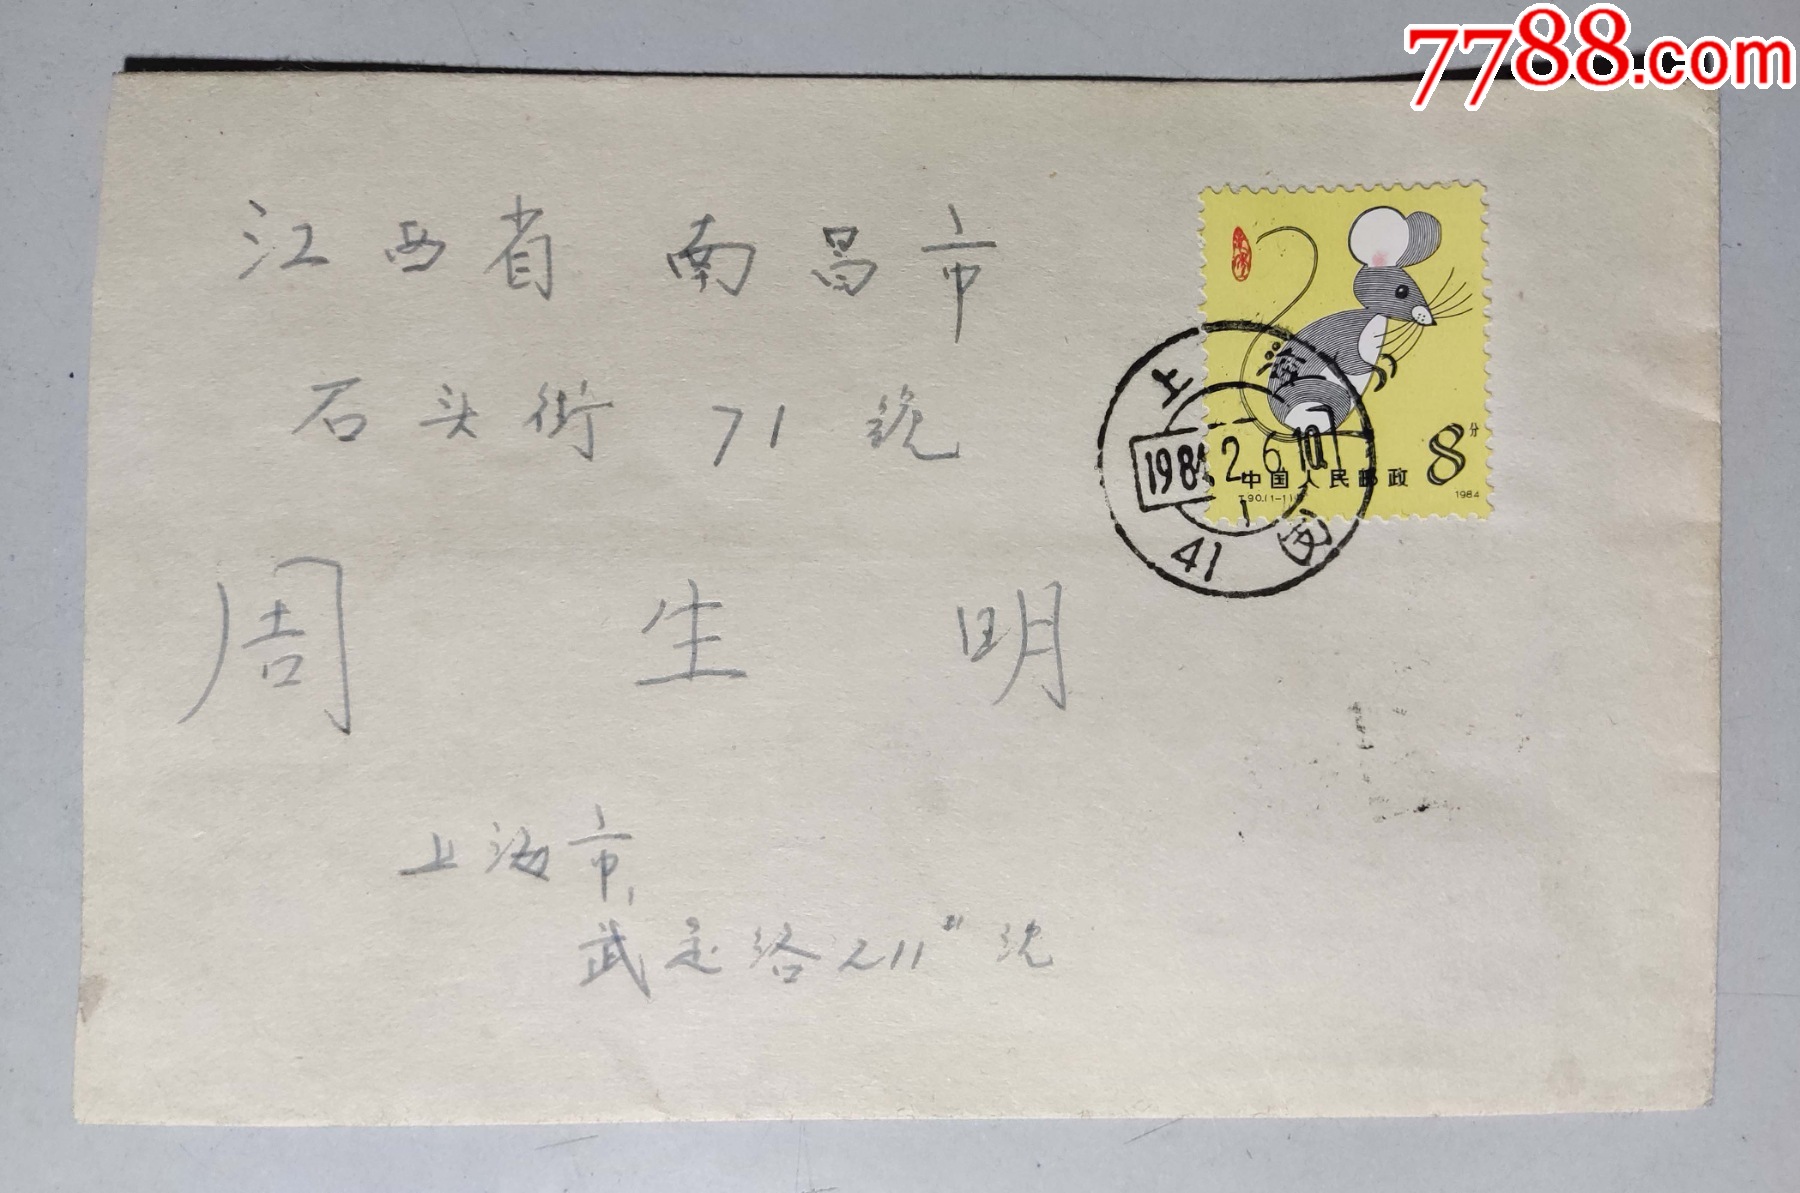 7788.com
江西省 南昌市
石头街 71 號
周 生 明
上海市,
武定路211#號
8分
中国人民邮政
T.90.(1-1)
1984
上海
1984.2.6.10
1
41